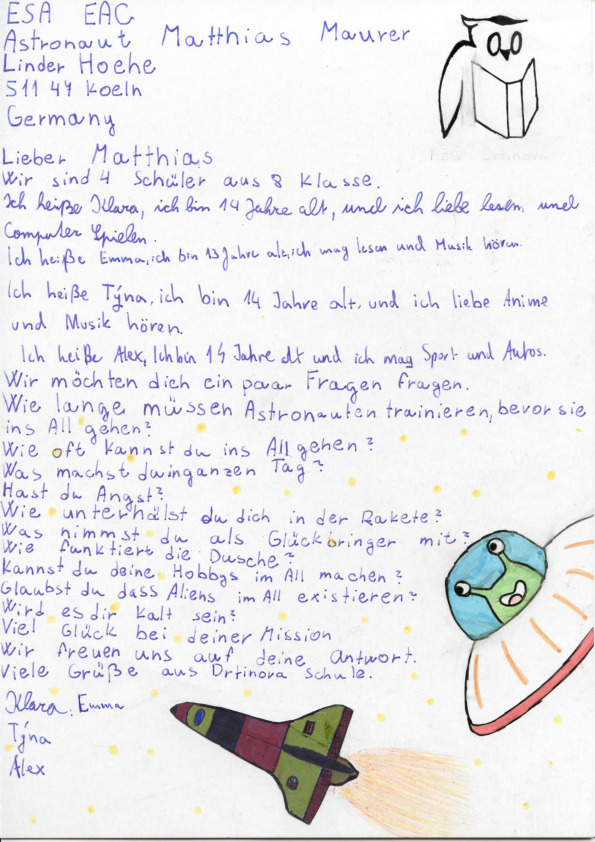 ESA EAC
Astronaut Matthias Maurer
Linder Hoehe
511 47 Koeln
Germany
FZŠ Drtinova
Lieber Matthias
Wir sind 4 Schüler aus 8 Klasse.
Ich heiße Klara, ich bin 14 Jahre alt, und ich liebe lesen und
Computer Spielen.
Ich heiße Emma, ich bin 13 Jahre alt, ich mag lesen und Musik hören.
Ich heiße Týna, ich bin 14 Jahre alt, und ich liebe Anime
und Musik hören.
Ich heiße Alex, Ich bin 14 Jahre alt und ich mag Sport und Autos.
Wir möchten dich ein paar Fragen fragen.
Wie lange müssen Astronauten trainieren, bevor sie
ins All gehen?
Wie oft kannst du ins All gehen?
Was machst du in ganzen Tag?
Hast du Angst?
Wie unterhälst du dich in der Rakete?
Was nimmst du als Glücksbringer mit?
Wie funktiert die Dusche?
Kannst du deine Hobbys im All machen?
Glaubst du dass Aliens im All existieren?
Wird es dir kalt sein?
Viel Glück bei deiner Mission
Wir freuen uns auf deine Antwort.
Viele Grüße aus Drtinova schule.
Klara, Emma
Týna
Alex